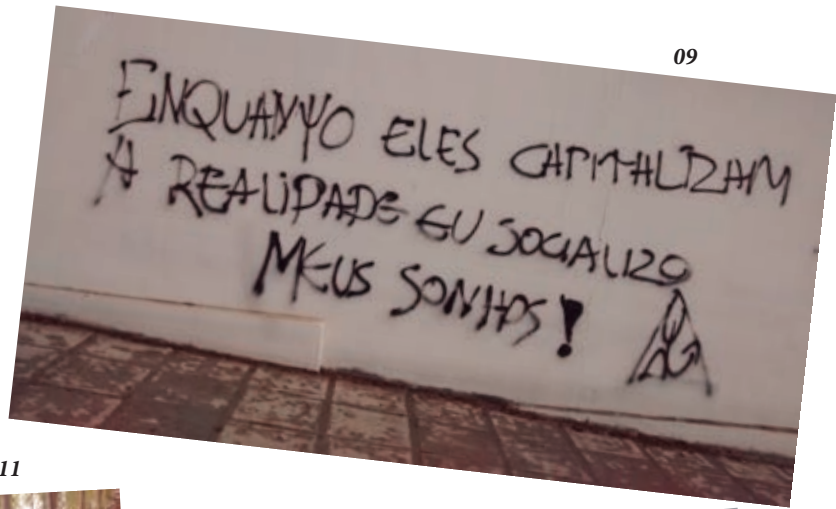 09
ENQUANTO ELES CAPITALIZAM
A REALIDADE EU SOCIALIZO
MEUS SONHOS!
11